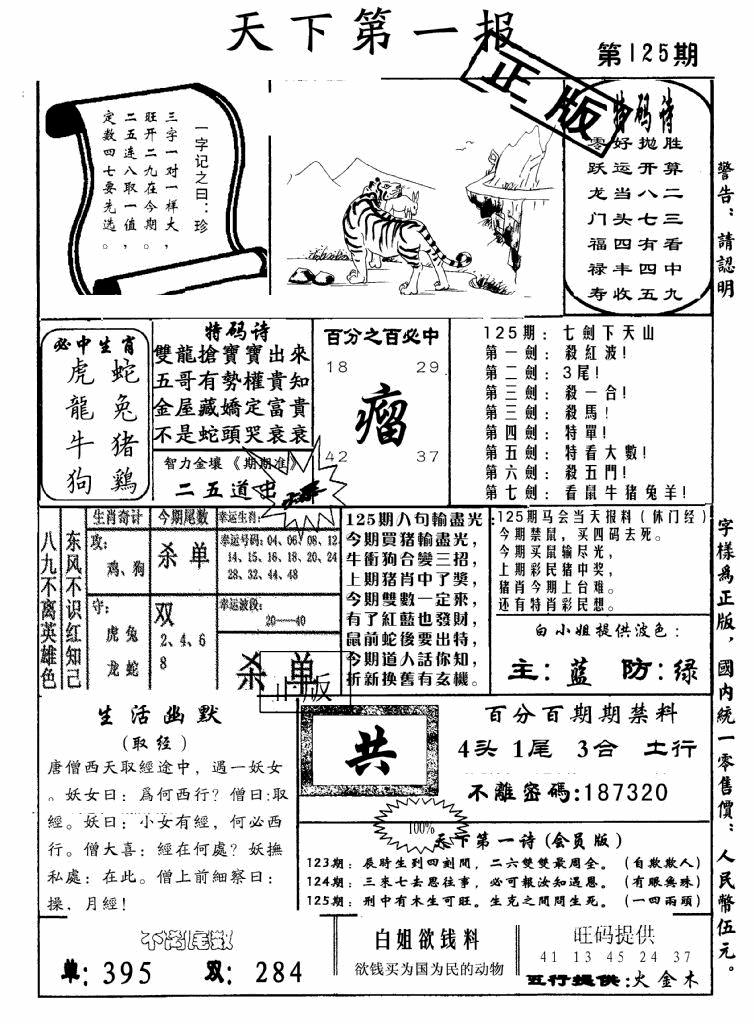 天下第一报
第125期
正版
一字记之曰：珍
三字一对一样大，
旺开二九在今期。
二五连八取一值，
定数四七要先选。
特码诗
零好抛胜
跃运开算
龙当八二
门头七三
福四有看
禄丰四中
寿收五九
警告：請認明
字樣爲正版，國内統一零售價：人民幣伍元。
必中生肖
虎 蛇
龍 兔
牛 猪
狗 鷄
特码诗
雙龍搶寶寶出來
五哥有勢權貴知
金屋藏嬌定富貴
不是蛇頭哭衰衰
智力金壤《期期准》
二五道出
百分之百必中
18 29
瘤
42 37
125期：七劍下天山
第一劍：殺紅波！
第二劍：3尾！
第三劍：殺一合！
第三劍：殺馬！
第四劍：特單！
第五劍：特看大數！
第六劍：殺五門！
第七劍：看鼠牛猪兔羊！
八九不离英雄色
东风不识红知己
生肖奇计
攻：
鸡、狗
守：
虎 兔
龙 蛇
今期尾数
杀单
双
2、4、6
8
幸运生肖：
幸运号码：04、06、08、12、
14、15、16、18、20、24
28、32、44、48
幸运波段：
20——40
杀单
正版
125期八句輸盡光
今期買猪輸盡光，
牛衝狗合變三招，
上期猪肖中了獎，
今期雙數一定來，
有了紅藍也發財，
鼠前蛇後要出特，
今期道人話你知，
折新換舊有玄機。
125期马会当天报料（休门经）
今期禁鼠，买四码去死。
今期买鼠输尽光，
上期彩民猪中奖，
猪肖今期上台难。
还有特肖彩民想。
白小姐提供波色：
主：蓝 防：绿
生活幽默
（取经）
唐僧西天取經途中，遇一妖女
。妖女曰：爲何西行？僧曰：取
經。妖曰：小女有經，何必西
行。僧大喜：經在何處？妖撫
私處：在此。僧上前細察曰：
操，月經！
共
百分百期期禁料
4头 1尾 3合 土行
不離密碼：187320
100%
天下第一诗（会员版）
123期：辰時生到四刻間，二六雙雙最周全。（自欺欺人）
124期：三來七去恩往事，必可報汝知遇恩。（有眼無珠）
125期：刑中有木生可旺。生克之間問生死。（一四兩頭）
单：395 双：284
白姐欲钱料
欲钱买为国为民的动物
旺码提供
41 13 45 24 37
五行提供：火金木